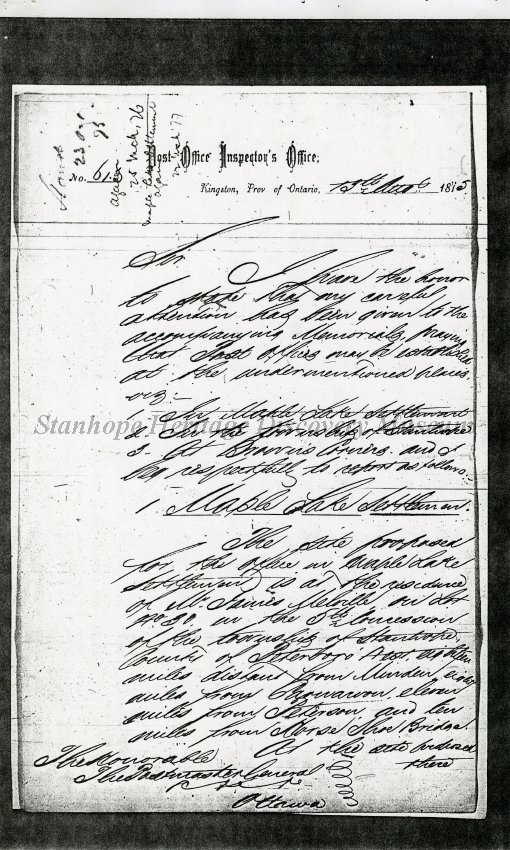 23
No. 61
25 Mch. 76
Maple Lake Settlement
again
Post Office Inspector's Office,
Kingston, Prov. of Ontario, 13th 1875
Sir
I have the honor
to state that my careful
attention has been given to the
accompanying Memorials, praying
that Post Offices may be established
at the undermentioned places
viz:-
1. In Maple Lake Settlement
2. In the township of Stanhope
3. At Brown's Corners. and I
beg respectfully to report as follows:-
Stanhope Heritage Discovery Museum
1 Maple Lake Settlement.
The site proposed
for the office in Maple Lake
Settlement is at the residence
of Mr. James Melville on Lot
No 30 in the 5th Concession
of the township of Stanhope,
County of Peterboro
miles distant from Minden,
miles from eleven
miles from Peterson and ten
miles from Horse Shoe Bridge.
At the site
there
The Honorable
The Postmaster General
Ottawa